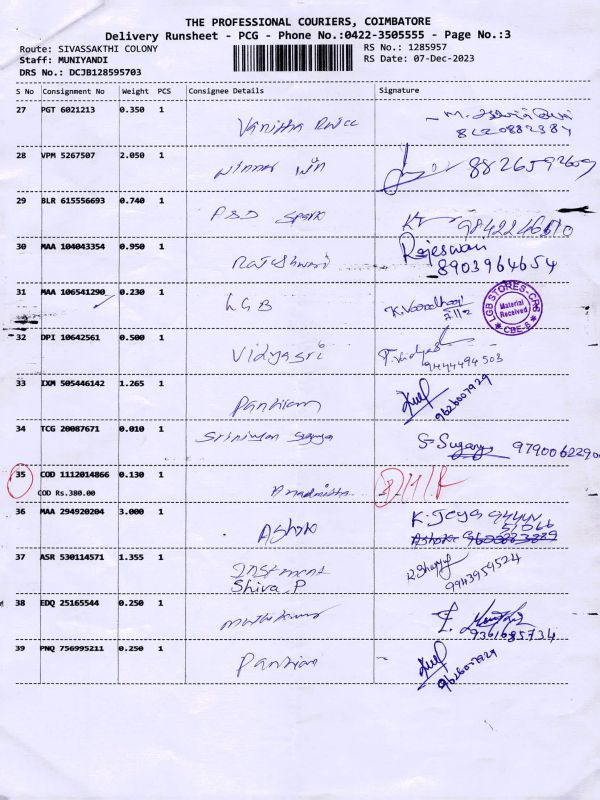 THE PROFESSIONAL COURIERS, COIMBATORE
Delivery Runsheet - PCG - Phone No.:0422-3505555 - Page No.:3
Route: SIVASSAKTHI COLONY
RS No.: 1285957
Staff: MUNIYANDI
RS Date: 07-Dec-2023
DRS No.: DCJB128595703
S No Consignment No Weight PCS Consignee Details Signature
27 PGT 6021213 0.350 1
28 VPM 5267507 2.050 1 Winner Win
8826592609
29 BLR 615556693 0.740 1 PSD Spares
9842246610
30 MAA 104043354 0.950 1 Rajeshwari Rajeswari
8903964654
31 MAA 106541290 0.230 1 LGB
LGB STORES-CR6
Material Received
CBE-6
32 DPI 10642561 0.500 1 Vidyasri T. Vidya
9444494503
33 IXM 505446142 1.265 1 Pandian
9626007929
34 TCG 20087671 0.010 1 S. Suganya 9790062290
35 COD 1112014866 0.130 1
COD Rs.380.00
36 MAA 294920204 3.000 1 Ashok K. Jeya
37 ASR 530114571 1.355 1
Shiva. P
9943959524
38 EDQ 25165544 0.250 1 Muthukumar
9361685734
39 PNQ 756995211 0.250 1 Pandian
9626007929